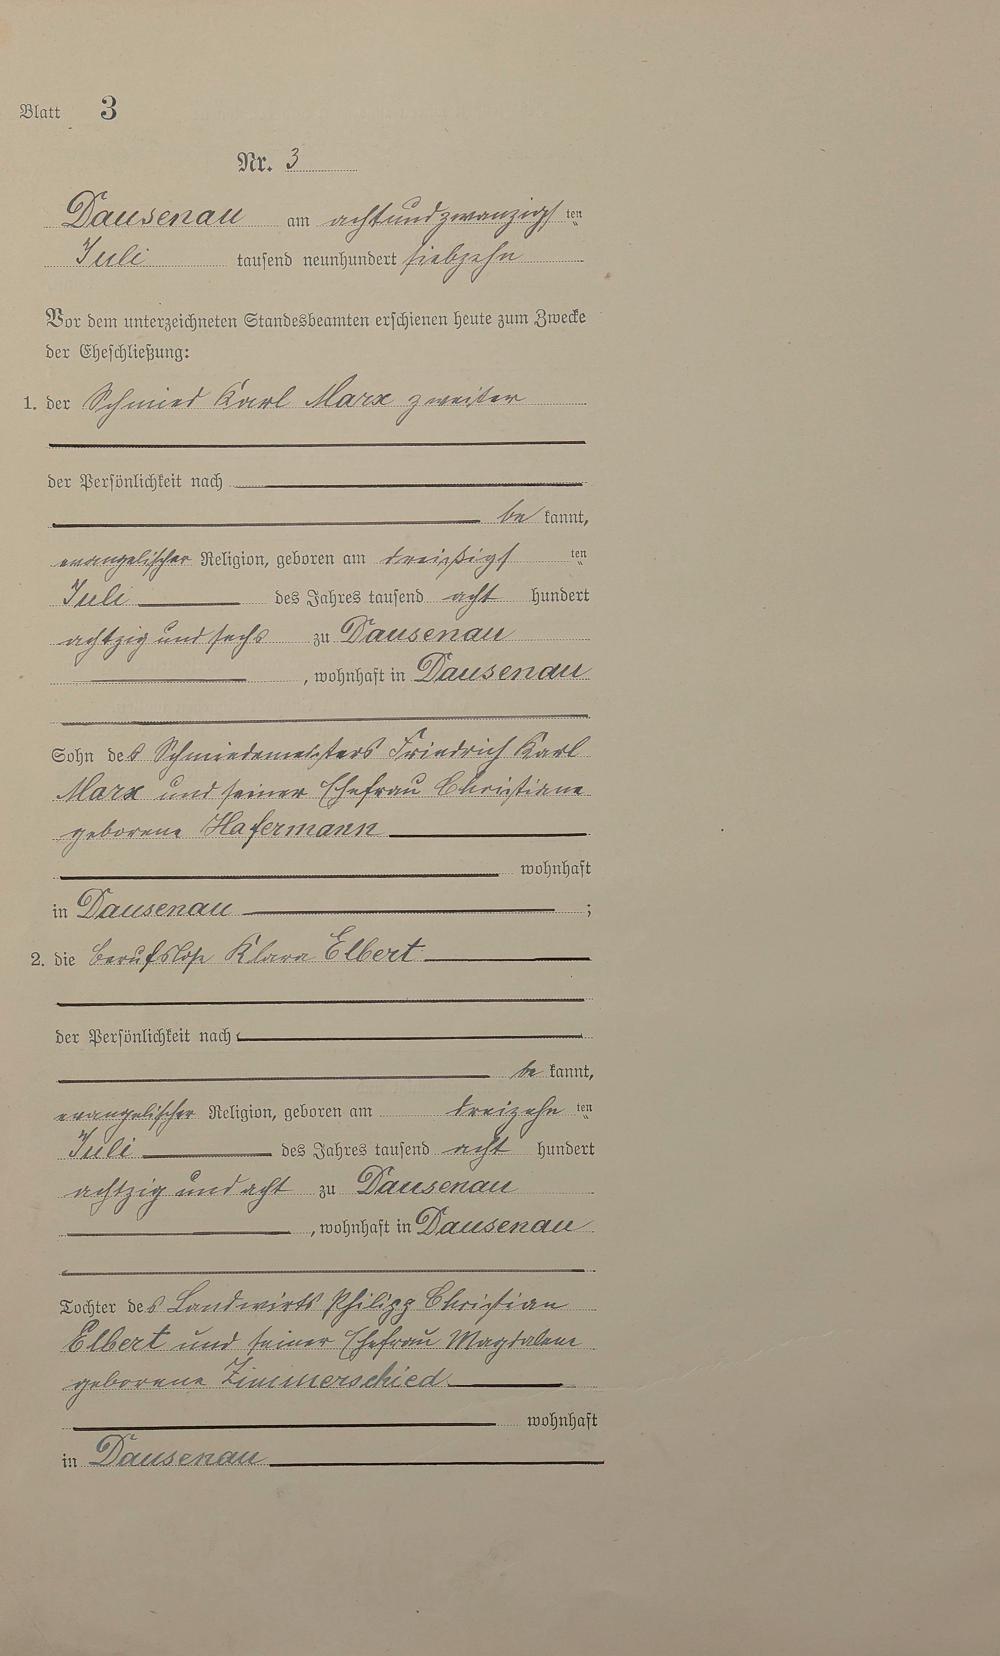 Blatt 3
Nr. 3
Dausenau am achtundzwanzigsten
Juli tausend neunhundert siebzehn
Vor dem unterzeichneten Standesbeamten erschienen heute zum Zwecke
der Eheschließung:
1. der Schmied Karl Marx zweiter
der Persönlichkeit nach
be kannt,
evangelischer Religion, geboren am dreißigsten
Juli des Jahres tausend acht hundert
achtzig und sechs zu Dausenau
, wohnhaft in Dausenau
Sohn des Schmiedemeisters Friedrich Karl
Marx und seiner Ehefrau Christiane
geborene Hafermann
wohnhaft
in Dausenau ;
2. die berufslose Klara Elbert
der Persönlichkeit nach
be kannt,
evangelischer Religion, geboren am dreizehn ten
Juli des Jahres tausend acht hundert
achtzig und acht zu Dausenau
, wohnhaft in Dausenau
Tochter des Landwirts Philipp Christian
Elbert und seiner Ehefrau Magdalene
geborene Zimmerschied
wohnhaft
in Dausenau